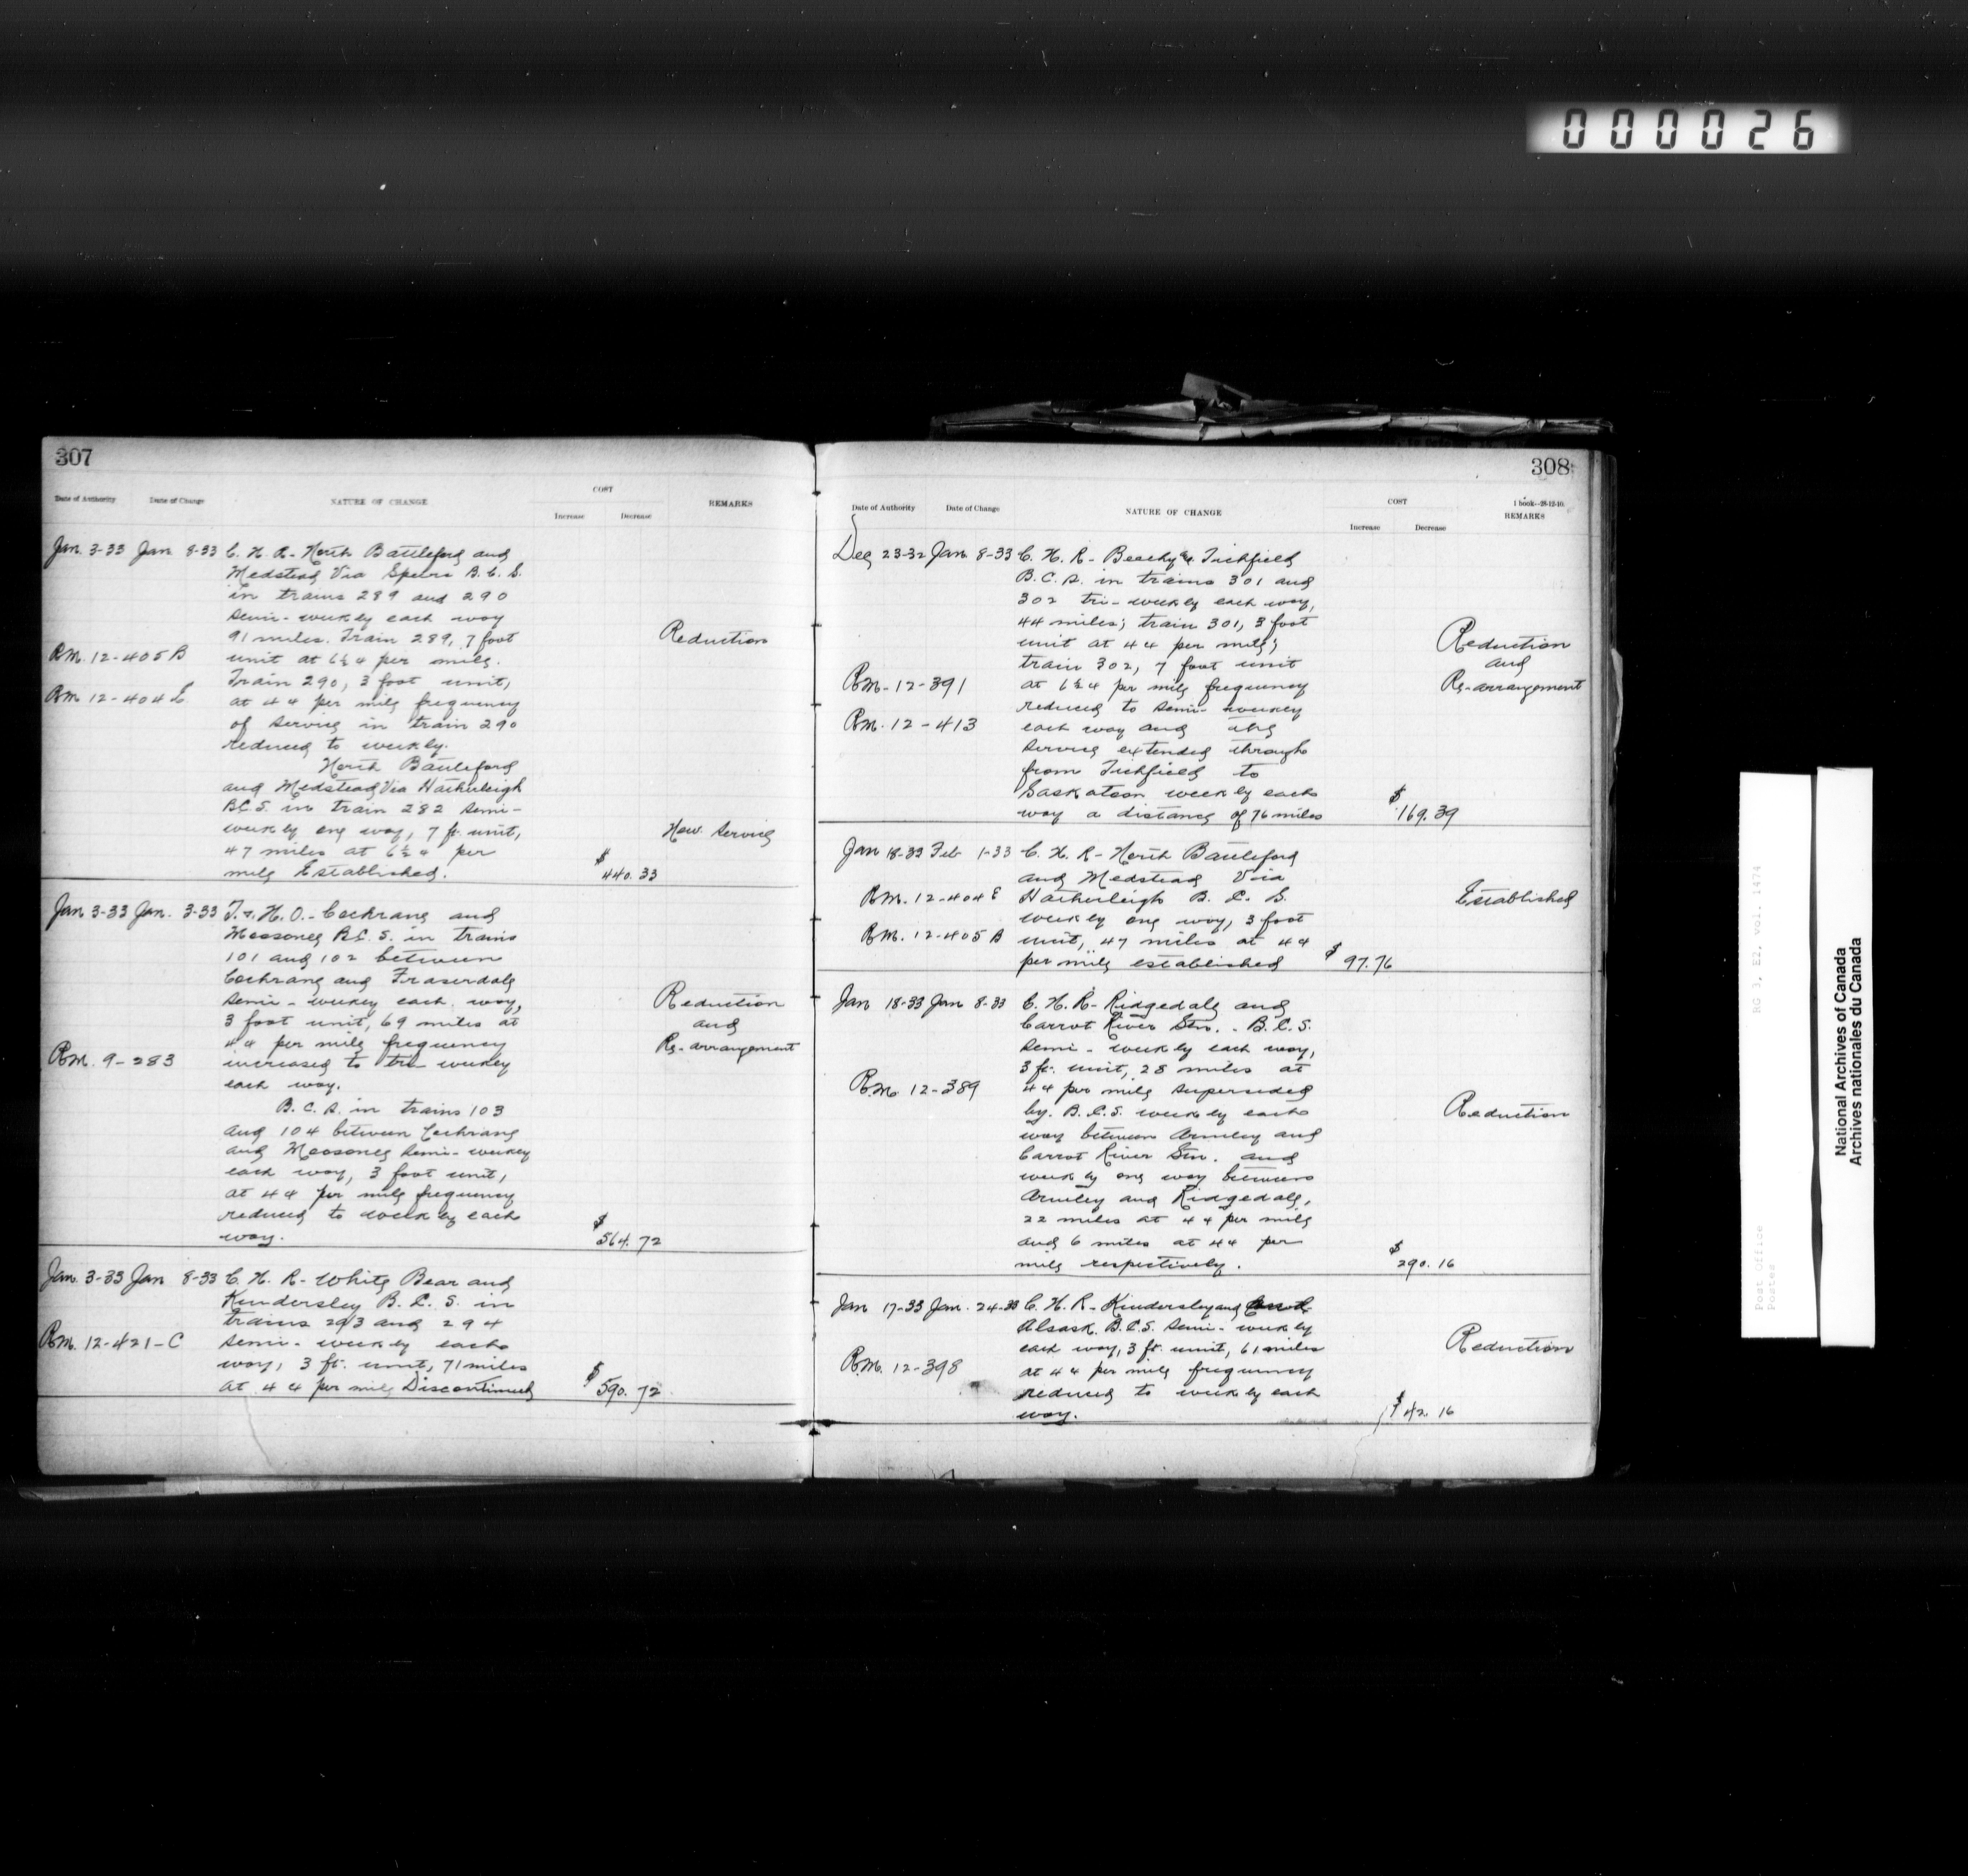 000026
307
Date of Authority Date of Change NATURE OF CHANGE COST REMARKS
Increase Decrease
Jan. 3-33 Jan 8-33 C. N. R. - North Battleford and
Medstead Via Speers B. C. S.
in trains 289 and 290
semi-weekly each way
91 miles. Train 289, 7 foot
Reduction
RM. 12-405 B unit at 6½ ¢ per mile.
Train 290, 3 foot unit,
RM 12-404 E at 4 ¢ per mile frequency
of service in train 290
reduced to weekly.
North Battleford
and Medstead Via Hatherleigh
B.C.S. in train 282 semi-
weekly one way, 7 ft. unit, New Service
47 miles at 6½ ¢ per
mile Established. $ 440.33
Jan 3-33 Jan. 3-33 T. & N. O. - Cochrane and
Moosonee B.C.S. in trains
101 and 102 between
Cochrane and Fraserdale
semi-weekly each way, Reduction
3 foot unit, 69 miles at and
4 ¢ per mile frequency Re-arrangement
RM. 9-283 increased to tri weekly
each way.
B. C. S. in trains 103
and 104 between Cochrane
and Moosonee semi-weekly
each way, 3 foot unit,
at 4 ¢ per mile frequency
reduced to weekly each
way. $ 564.72
Jan. 3-33 Jan 8-33 C. N. R - White Bear and
Kindersley B. C. S. in
trains 293 and 294
RM. 12-421-C semi-weekly each
way, 3 ft. unit, 71 miles
at 4 ¢ per mile Discontinued $ 590.72
308
1 book--28-12-10.
Date of Authority Date of Change NATURE OF CHANGE COST REMARKS
Increase Decrease
Dec 23-32 Jan. 8-33 C. N. R - Beechy & Tichfield
B. C. S. in trains 301 and
302 tri-weekly each way,
44 miles; train 301, 3 foot
unit at 4 ¢ per mile; Reduction
train 302, 7 foot unit and
RM.-12-391 at 6½ ¢ per mile frequency Re-arrangement
reduced to semi-weekly
RM. 12-413 each way and the
service extended through
from Tichfield to
Saskatoon weekly each
way a distance of 76 miles $ 169.39
Jan 18-33 Feb 1-33 C. N. R - North Battleford
and Medstead Via
RM. 12-404 E Hatherleigh B. C. S. Established
weekly one way, 3 foot
RM. 12-405 B unit, 47 miles at 4 ¢
per mile established $ 97.76
Jan 18-33 Jan 8-33 C. N. R - Ridgedale and
Carrot River Stn. - B.C.S.
semi-weekly each way,
3 ft. unit, 28 miles at
RM 12-389 4 ¢ per mile superseded
by B.C.S. weekly each Reduction
way between Armley and
Carrot River Stn. and
weekly one way between
Armley and Ridgedale,
22 miles at 4 ¢ per mile
and 6 miles at 4 ¢ per
mile respectively. $ 290.16
Jan 17-33 Jan. 24-33 C. N. R - Kindersley and
Alsask. B.C.S. semi-weekly
each way, 3 ft. unit, 61 miles Reduction
RM. 12-398 at 4 ¢ per mile frequency
reduced to weekly each
way. $ 42.16
Post Office RG 3, E2, vol. 1474
Postes
National Archives of Canada
Archives nationales du Canada